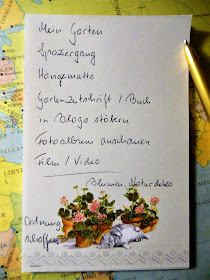 Mein Garten
Spaziergang
Hängematte
Gartenzeitschrift / Buch
in Blogs stöbern
Fotoalbum anschauen
Film / Video
Blumen, Naturdeko
Ordnung
schaffen